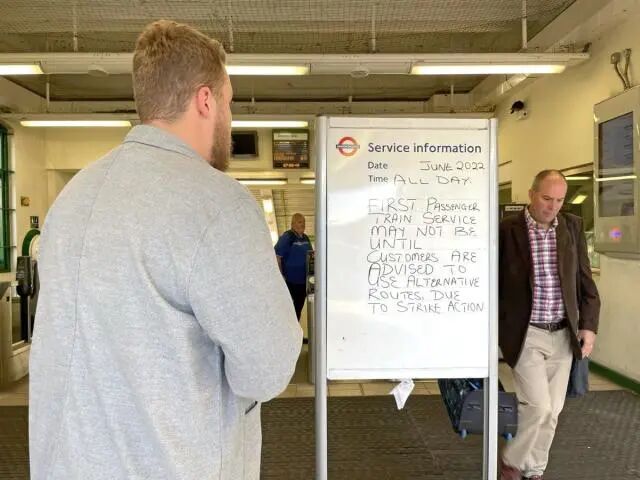 Service information
Date JUNE 2022
Time ALL DAY.
FIRST PASSENGER
TRAIN SERVICE
MAY NOT BE
UNTIL
CUSTOMERS ARE
ADVISED TO
USE ALTERNATIVE
ROUTES, DUE
TO STRIKE ACTION